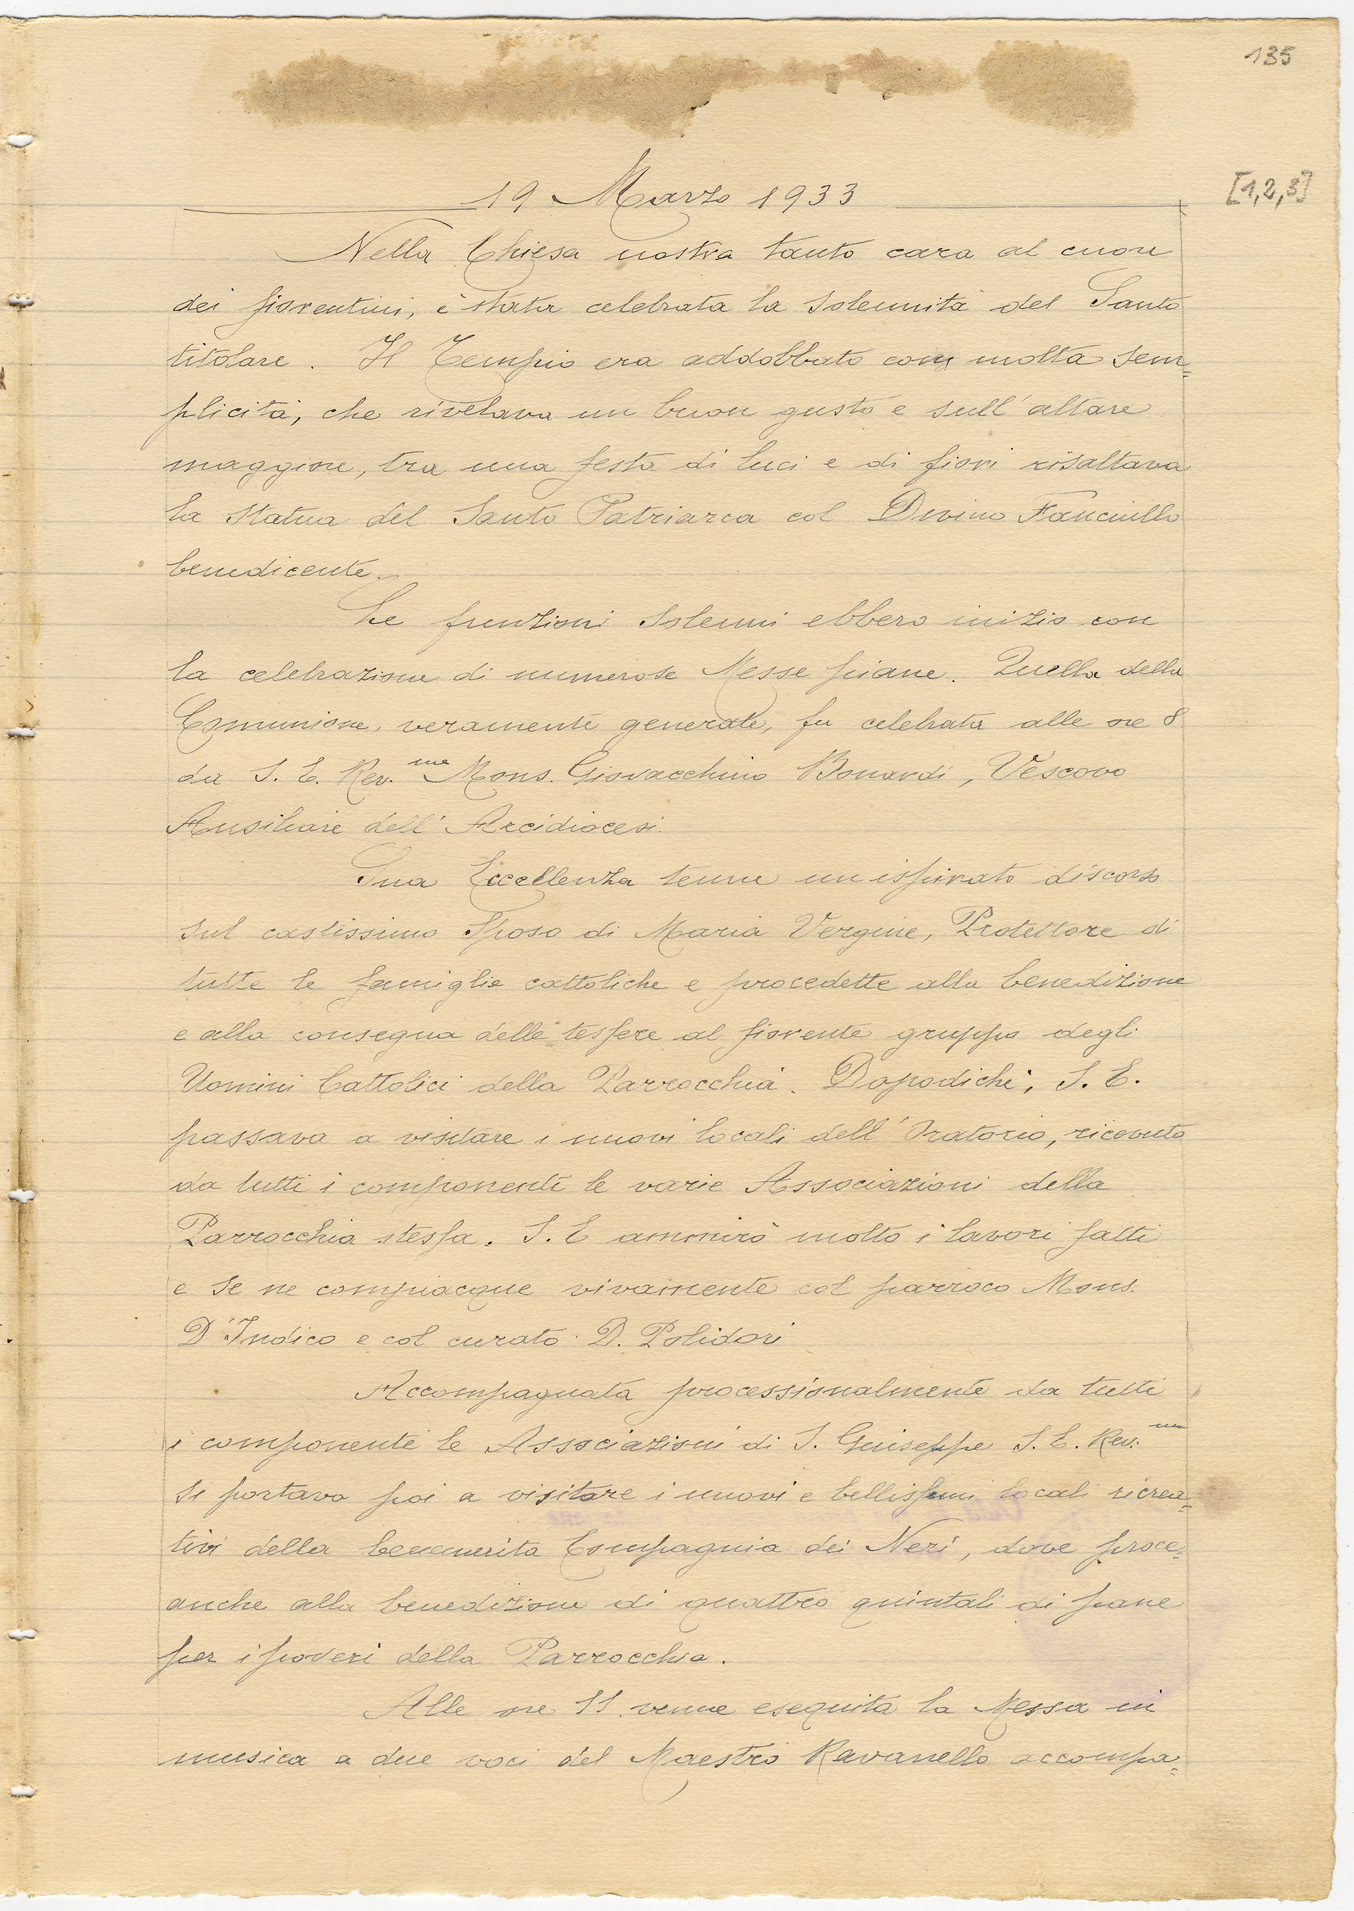 135
19 Marzo 1933
[1,2,3]
Nella Chiesa nostra tanto cara al cuore
dei fiorentini, è stata celebrata la solennità del Santo
titolare. Il Tempio era addobbato con molta sem=
plicità, che rivelava un buon gusto e sull'altare
maggiore, tra una festa di luci e di fiori risaltava
la statua del Santo Patriarca col Divino Fanciullo
benedicente.
Le funzioni solenni ebbero inizio con
la celebrazione di numerose Messe piane. Quella della
Comunione, veramente generale, fu celebrata alle ore 8
da S. E. Rev.ma Mons. Giovacchino Bonardi, Vescovo
Ausiliare dell'Arcidiocesi.
Sua Eccellenza tenne un ispirato discorso
sul castissimo Sposo di Maria Vergine, Protettore di
tutte le famiglie cattoliche e procedette alla benedizione
e alla consegna delle tessere al fiorente gruppo degli
Uomini Cattolici della Parrocchia. Dopodichè, S. E.
passava a visitare i nuovi locali dell'Oratorio, ricevuto
da tutti i componenti le varie Associazioni della
Parrocchia stessa. S. E ammirò molto i lavori fatti
e se ne compiacque vivamente col parroco Mons.
D'Indico e col curato D. Polidori
Accompagnata processionalmente da tutti
i componenti le Associazioni di S. Giuseppe S. E. Rev.ma
si portava poi a visitare i nuovi e bellissimi locali ricrea=
tivi della benemerita Compagnia dei Neri, dove proce=
anche alla benedizione di quattro quintali di pane
per i poveri della Parrocchia.
Alle ore 11 venne eseguita la Messa in
musica a due voci del Maestro Ravanello accompa=